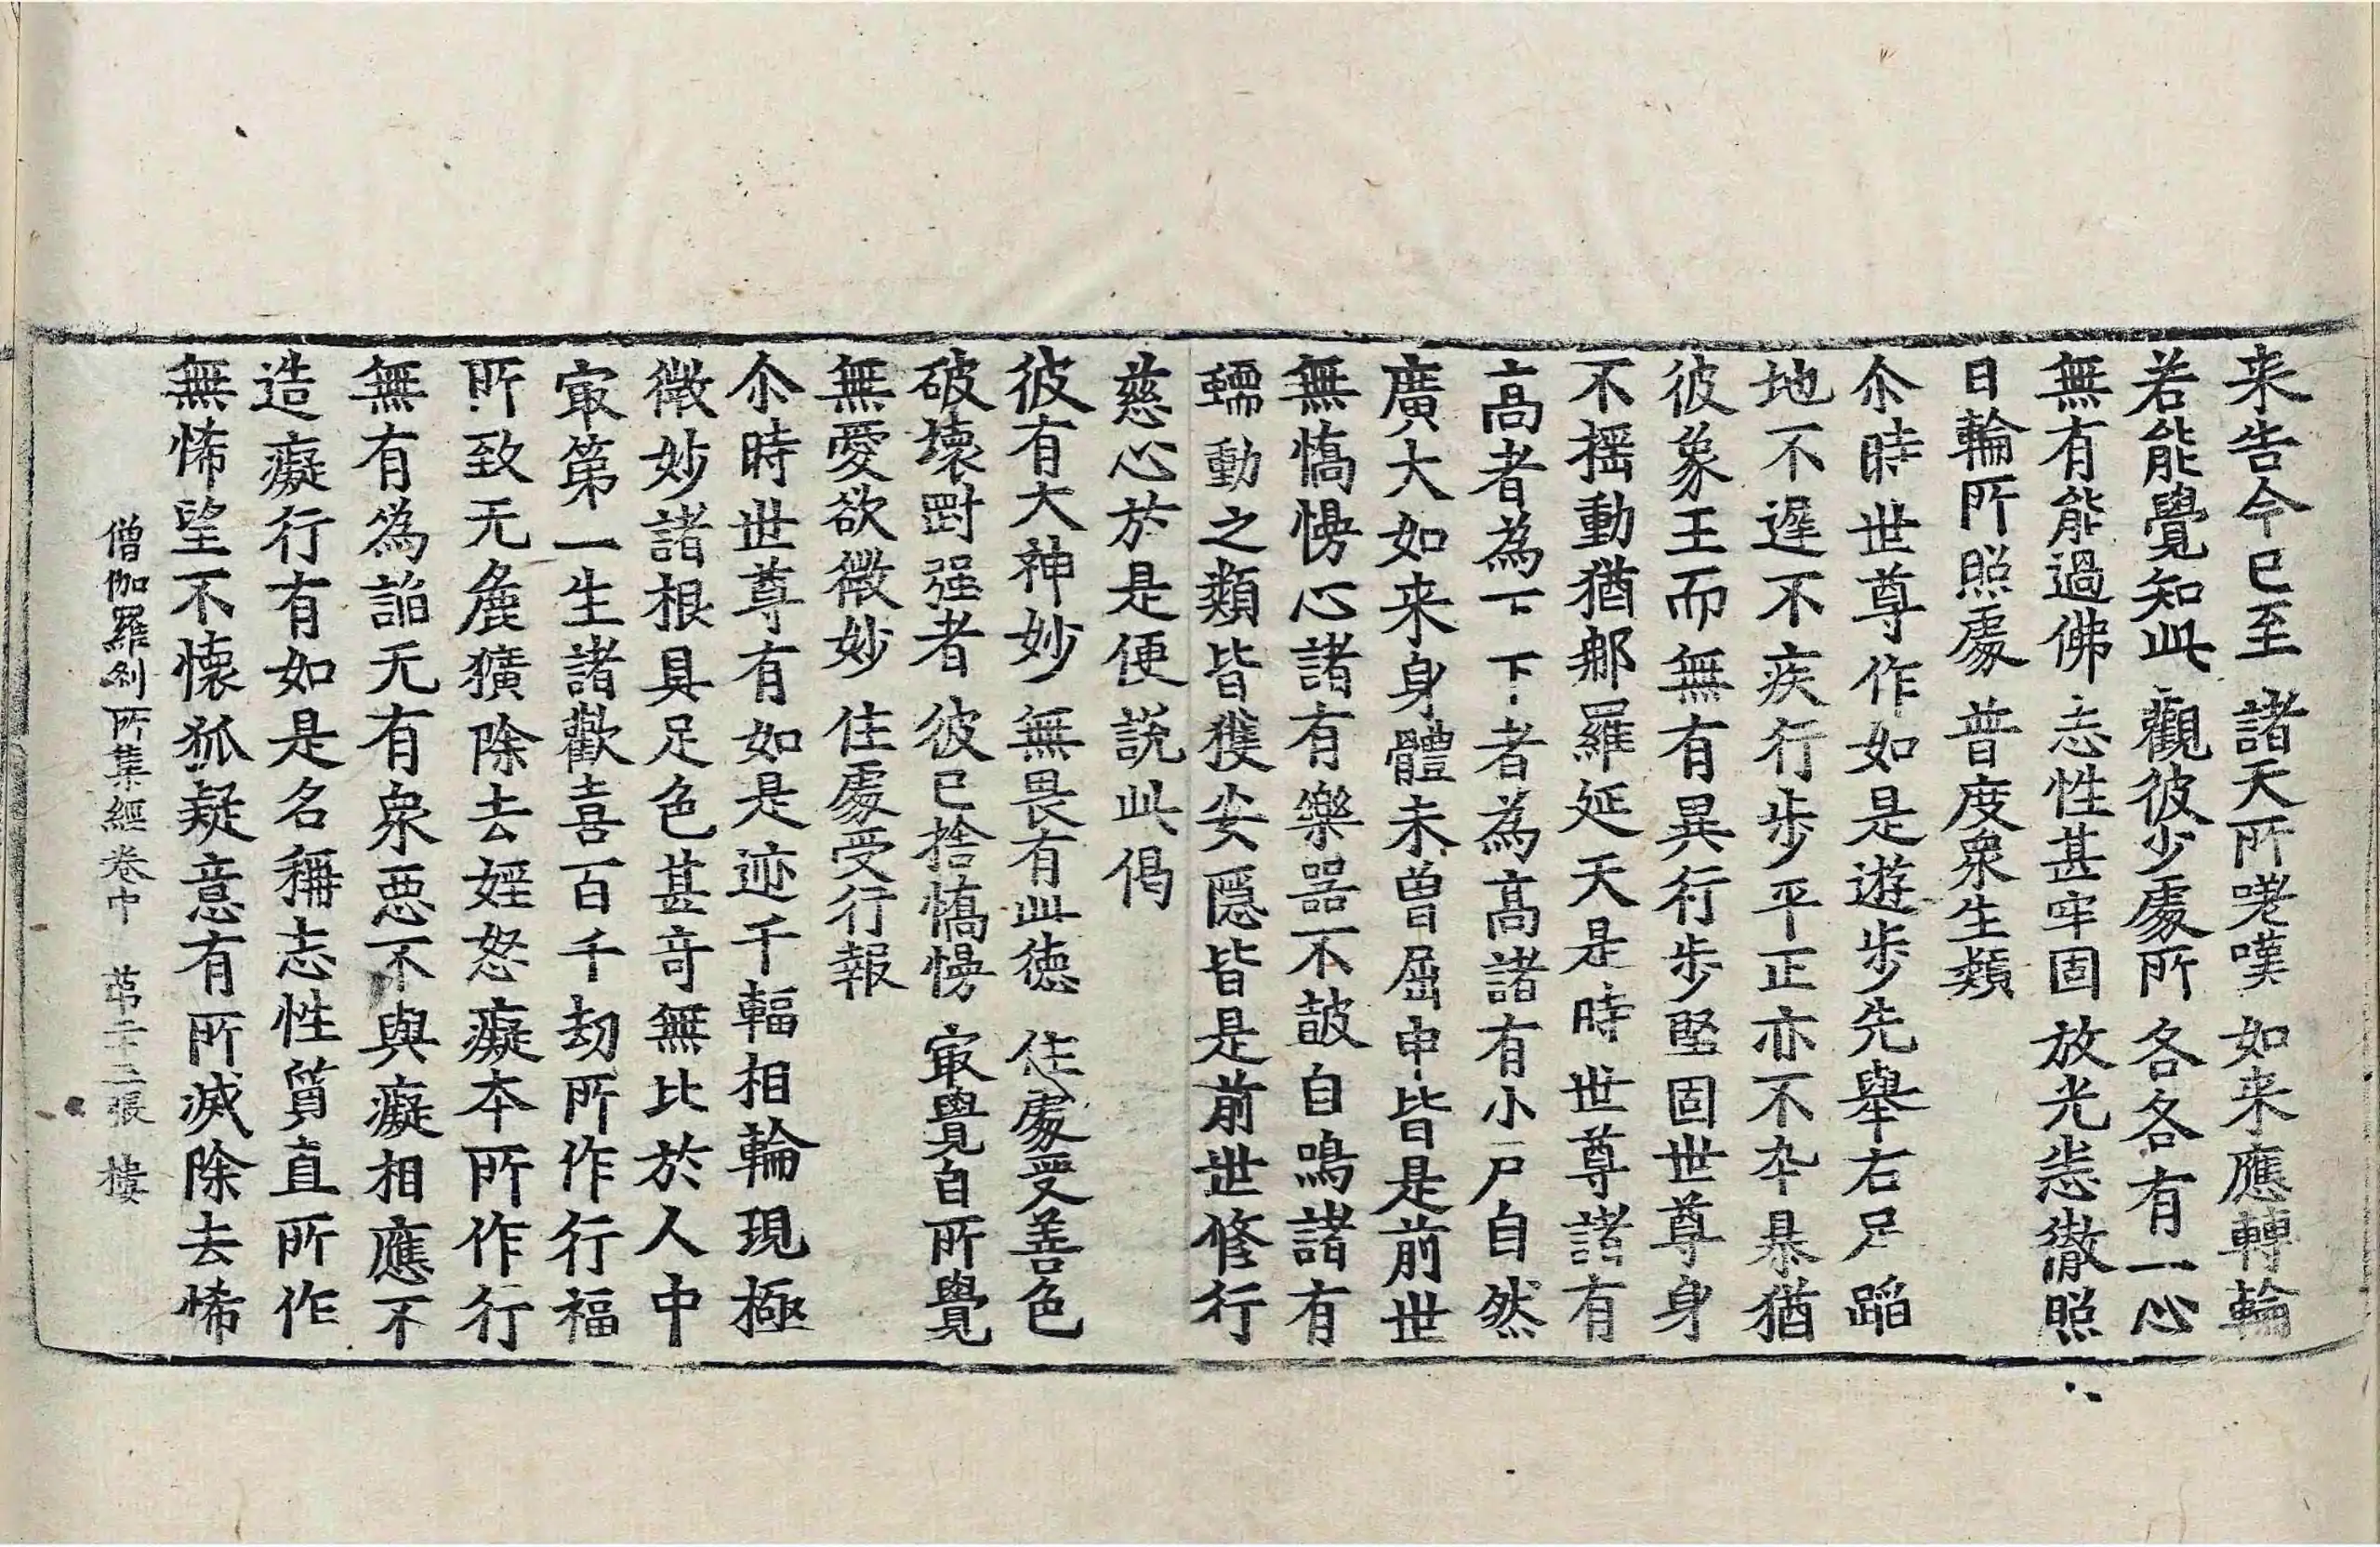 来告今已至　諸天所嗟嘆　如来應轉輪
若能覺知此　觀彼少處所　各各有一心
無有能過佛　志性甚牢固　放光悉徹照
日輪所照處　普度衆生類
尒時世尊作如是遊步先舉右足蹈
地不遲不疾行步平正亦不卒暴猶
彼象王而無有異行步堅固世尊身
不摇動猶𨚗羅延天是時世尊諸有
高者為下下者為高高諸有小戶自然
廣大如来身體未曾屈申皆是前世
無憍慢心諸有樂器不鼓自鳴諸有
蠕動之類皆獲安隱皆是前世修行
慈心於是便説此偈
彼有大神妙　無畏有此德　住處受善色
破壞對强者　彼已捨憍慢　㝡覺自所覺
無愛欲微妙　住處受行報
尒時世尊有如是迹千輻相輪現極
微妙諸根具足色甚奇無比於人中
㝡第一生諸歡喜百千劫所作行福
所致无麁獷除去婬怒癡本所作行
無有為諂无有衆惡不與癡相應不
造癡行有如是名稱志性質直所作
無悕望不懷狐疑意有所滅除去悕
僧伽羅刹所集經卷中　第二十二張　樓